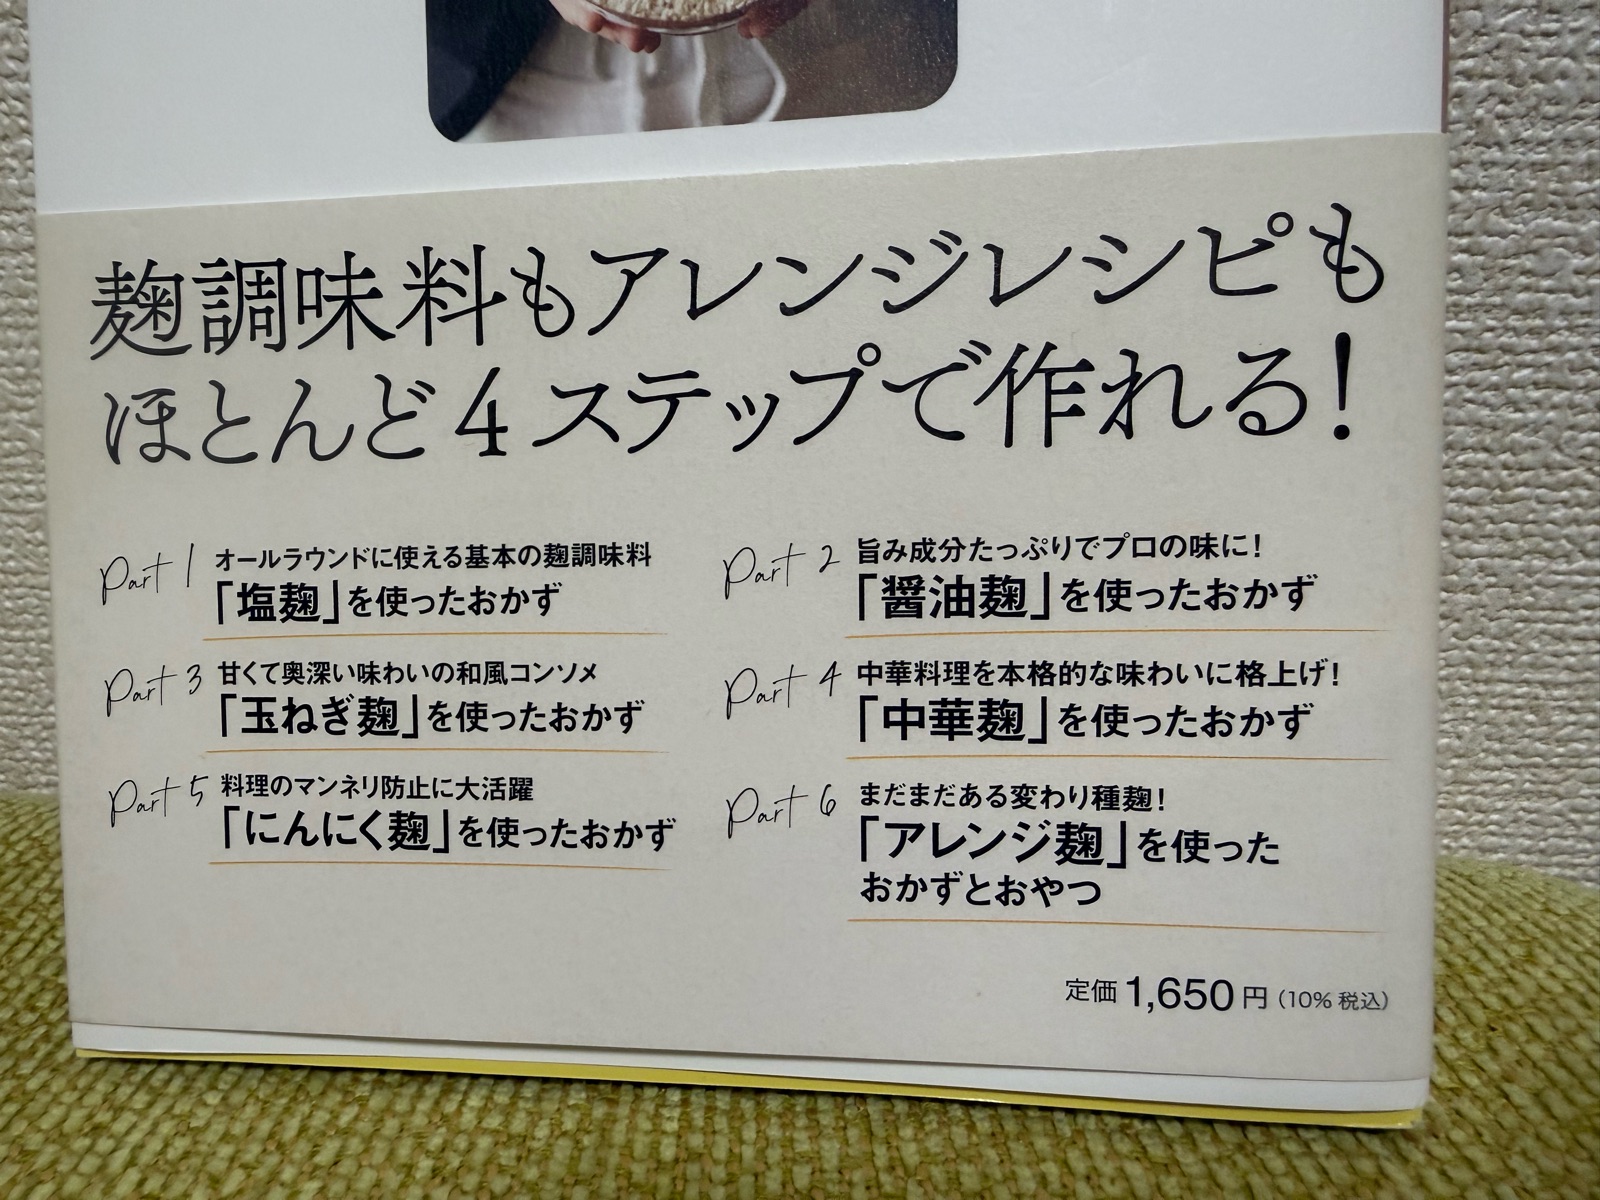 麹調味料もアレンジレシピも
ほとんど4ステップで作れる!
Part 1 オールラウンドに使える基本の麹調味料
「塩麹」を使ったおかず
Part 2 旨み成分たっぷりでプロの味に!
「醤油麹」を使ったおかず
Part 3 甘くて奥深い味わいの和風コンソメ
「玉ねぎ麹」を使ったおかず
Part 4 中華料理を本格的な味わいに格上げ!
「中華麹」を使ったおかず
Part 5 料理のマンネリ防止に大活躍
「にんにく麹」を使ったおかず
Part 6 まだまだある変わり種麹!
「アレンジ麹」を使った
おかずとおやつ
定価1,650円(10%税込)